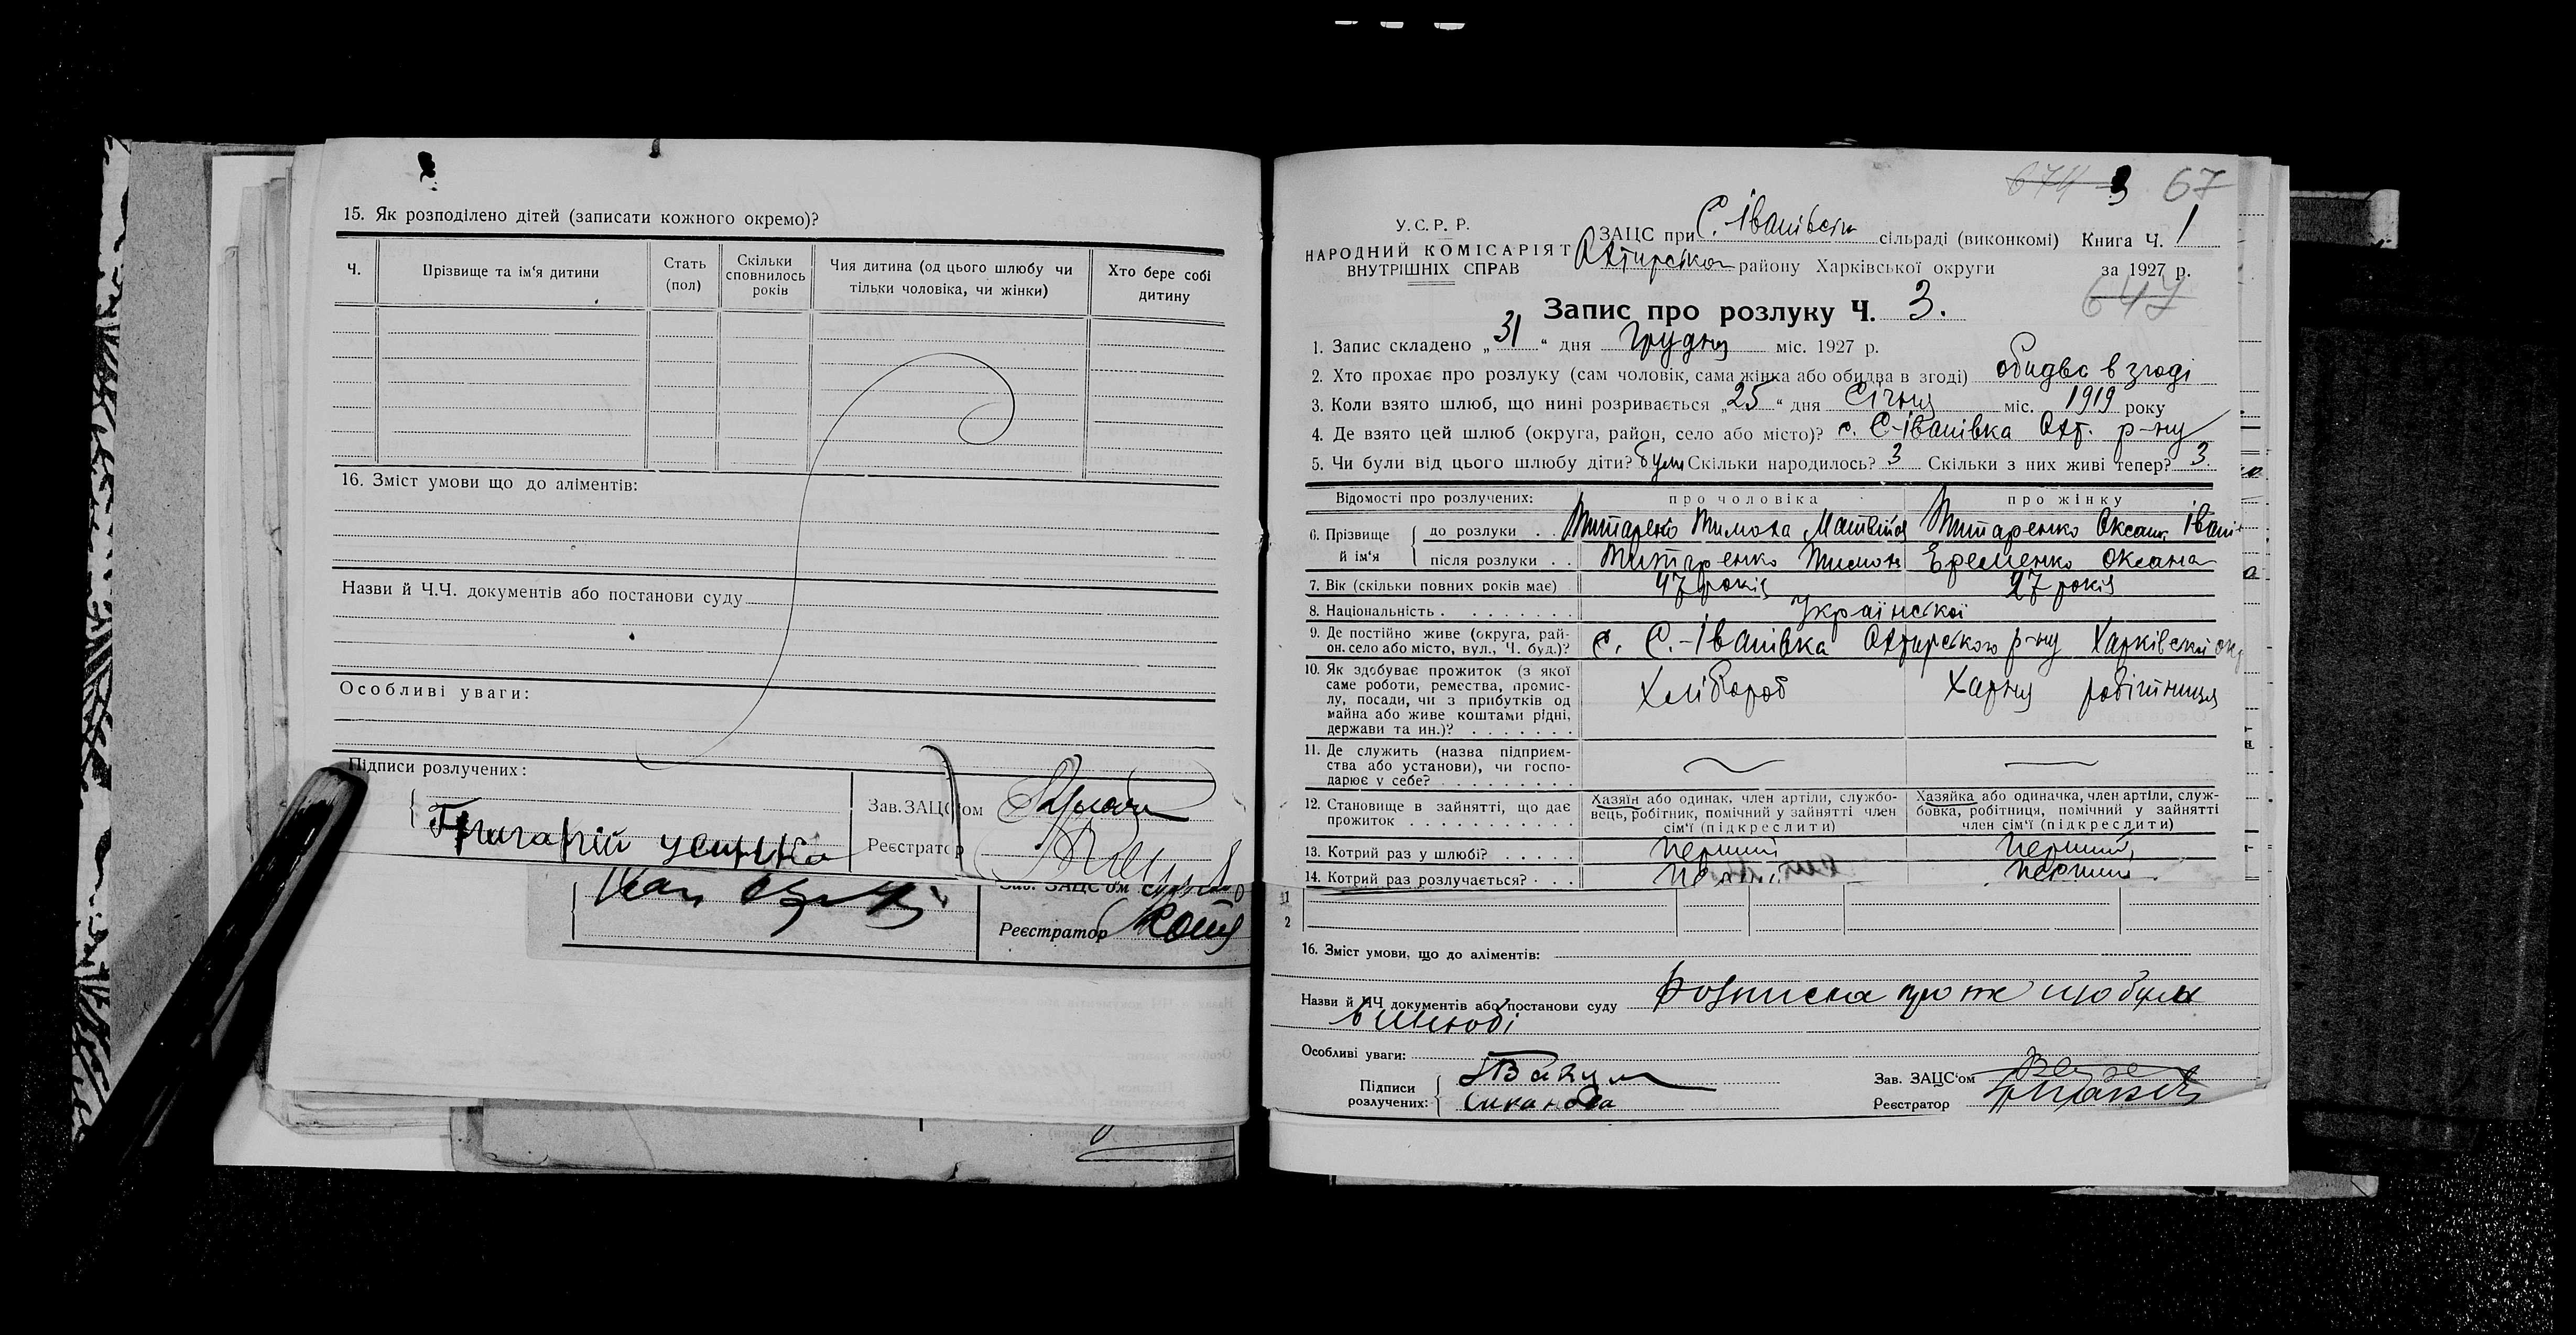 15. Як розподілено дітей (записати кожного окремо)?
Ч.
Прізвище та ім'я дитини
Стать (пол)
Скільки сповнилось років
Чия дитина (од цього шлюбу чи тільки чоловіка, чи жінки)
Хто бере собі дитину
16. Зміст умови що до аліментів:
Назви й Ч.Ч. документів або постанови суду
Особливі уваги:
Підписи розлучених:
Зав. ЗАЦС'ом
Реєстратор
Зав. ЗАЦС'ом
Реєстратор
674 67
У.С.Р.Р.
НАРОДНИЙ КОМІСАРІЯТ
ВНУТРІШНІХ СПРАВ
ЗАЦС при С. Іванівськ сільраді (виконкомі) Книга Ч. 1
Охтирського району Харківської округи за 1927 р.
647
Запис про розлуку Ч. 3.
1. Запис складено „31" дня грудня міс. 1927 р.
2. Хто прохає про розлуку (сам чоловік, сама жінка або обидва в згоді) обидва в згоді
3. Коли взято шлюб, що нині розривається „25" дня Січня міс. 1919 року
4. Де взято цей шлюб (округа, район, село або місто)? с. С-Іванівка Охт. р-ну
5. Чи були від цього шлюбу діти? були Скільки народилось? 3 Скільки з них живі тепер? 3.
Відомості про розлучених: про чоловіка про жінку
6. Прізвище й ім'я
до розлуки Титаренко Тимоха Матвійов Титаренко Оксана Івані
після розлуки Титаренко Тимох Еременко Оксана
7. Вік (скільки повних років має) 47 років 27 років
8. Національність Української
9. Де постійно живе (округа, район, село або місто, вул., Ч. буд.)? с. С.-Іванівка Охтирського р-ну Харківської окр
10. Як здобуває прожиток (з якої саме роботи, ремества, промислу, посади, чи з прибутків од майна або живе коштами рідні, держави та ин.)? Хлібороб Харня робітниця
11. Де служить (назва підприємства або установи), чи господарює у себе?
12. Становище в зайнятті, що дає прожиток
Хазяїн або одинак, член артіли, службовець, робітник, помічний у зайнятті член сім'ї (підкреслити)
Хазяйка або одиначка, член артіли, службовка, робітниця, помічний у зайнятті член сім'ї (підкреслити)
13. Котрий раз у шлюбі? перший перший
14. Котрий раз розлучається? перший
1
2
16. Зміст умови, що до аліментів:
Назви й ЧЧ документів або постанови суду Розписка про те що були
в шлюбі
Особливі уваги:
Підписи розлучених:
Зав. ЗАЦС'ом
Реєстратор